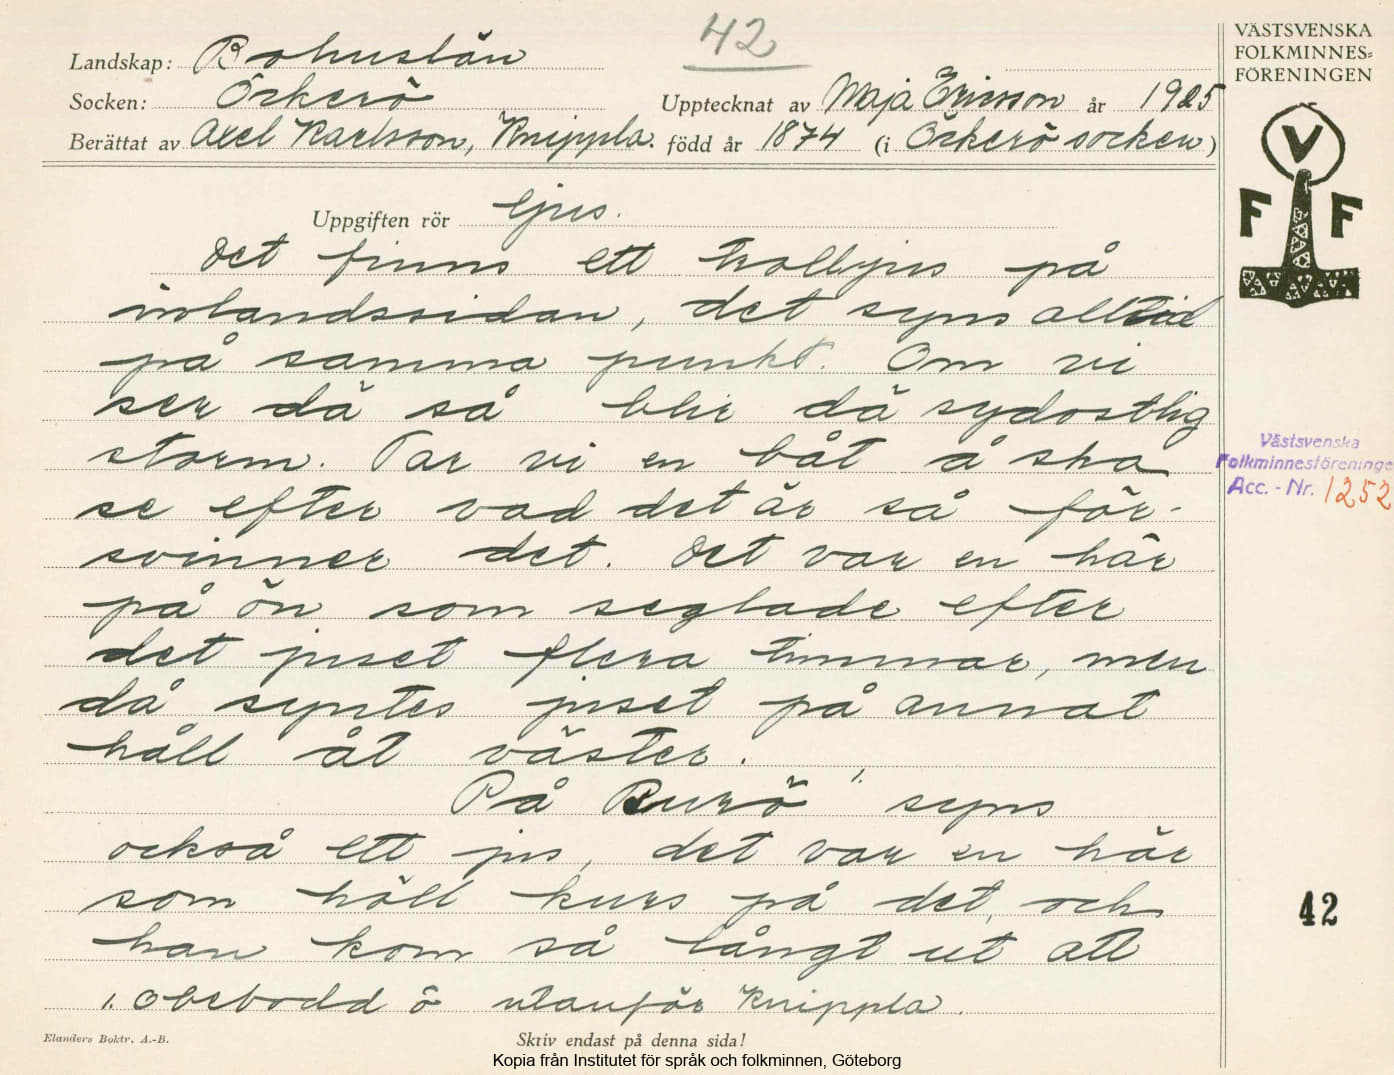 42
Landskap: Bohuslän
Socken: Öckerö
Upptecknat av Maja Ericsson år 1925
Berättat av Axel Karlsson, Knippla. född år 1874 (i Öckerö socken)
VÄSTSVENSKA
FOLKMINNES=
FÖRENINGEN
V
F F
Uppgiften rör ljus.
Det finns ett trolljus på
inlandssidan, det syns alltid
på samma punkt. Om vi
ser dä så blir dä sydostlig
storm. Tar vi en båt å ska
se efter vad det är så för-
svinner det. Det var en här
på ön som seglade efter
det juset flera timmar, men
då syntes juset på annat
håll åt väster.
På Burö 1. syns
också ett jus, det var en här
som höll kurs på det, och
han kom så långt ut att
1. Obebodd ö utanför Knippla.
Västsvenska
Folkminnesföreninge
Acc. - Nr. 1252
42
Elanders Boktr. A.-B.
Skriv endast på denna sida!
Kopia från Institutet för språk och folkminnen, Göteborg